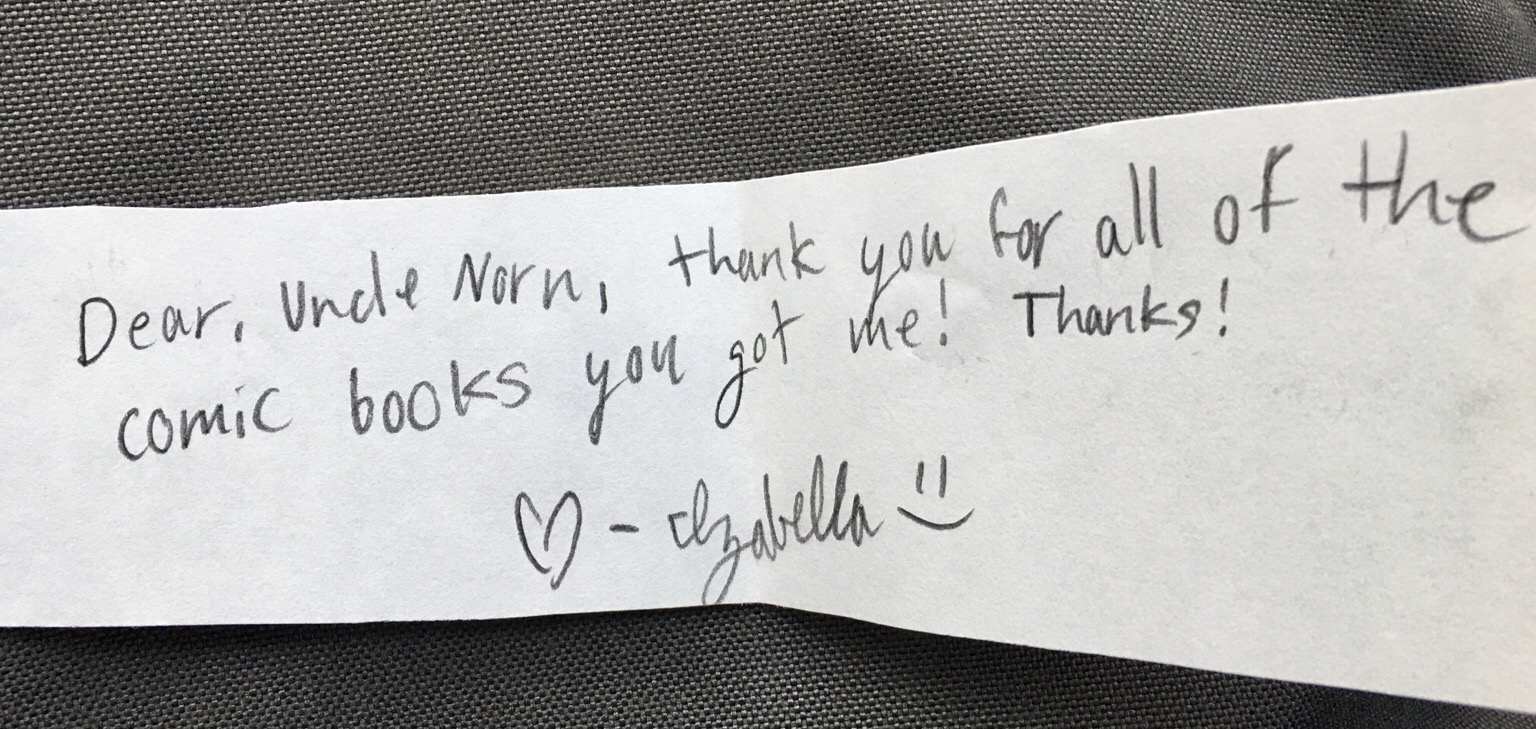 Dear, Uncle Norn, thank you for all of the
comic books you got me! Thanks!
♡ - Izabella :)